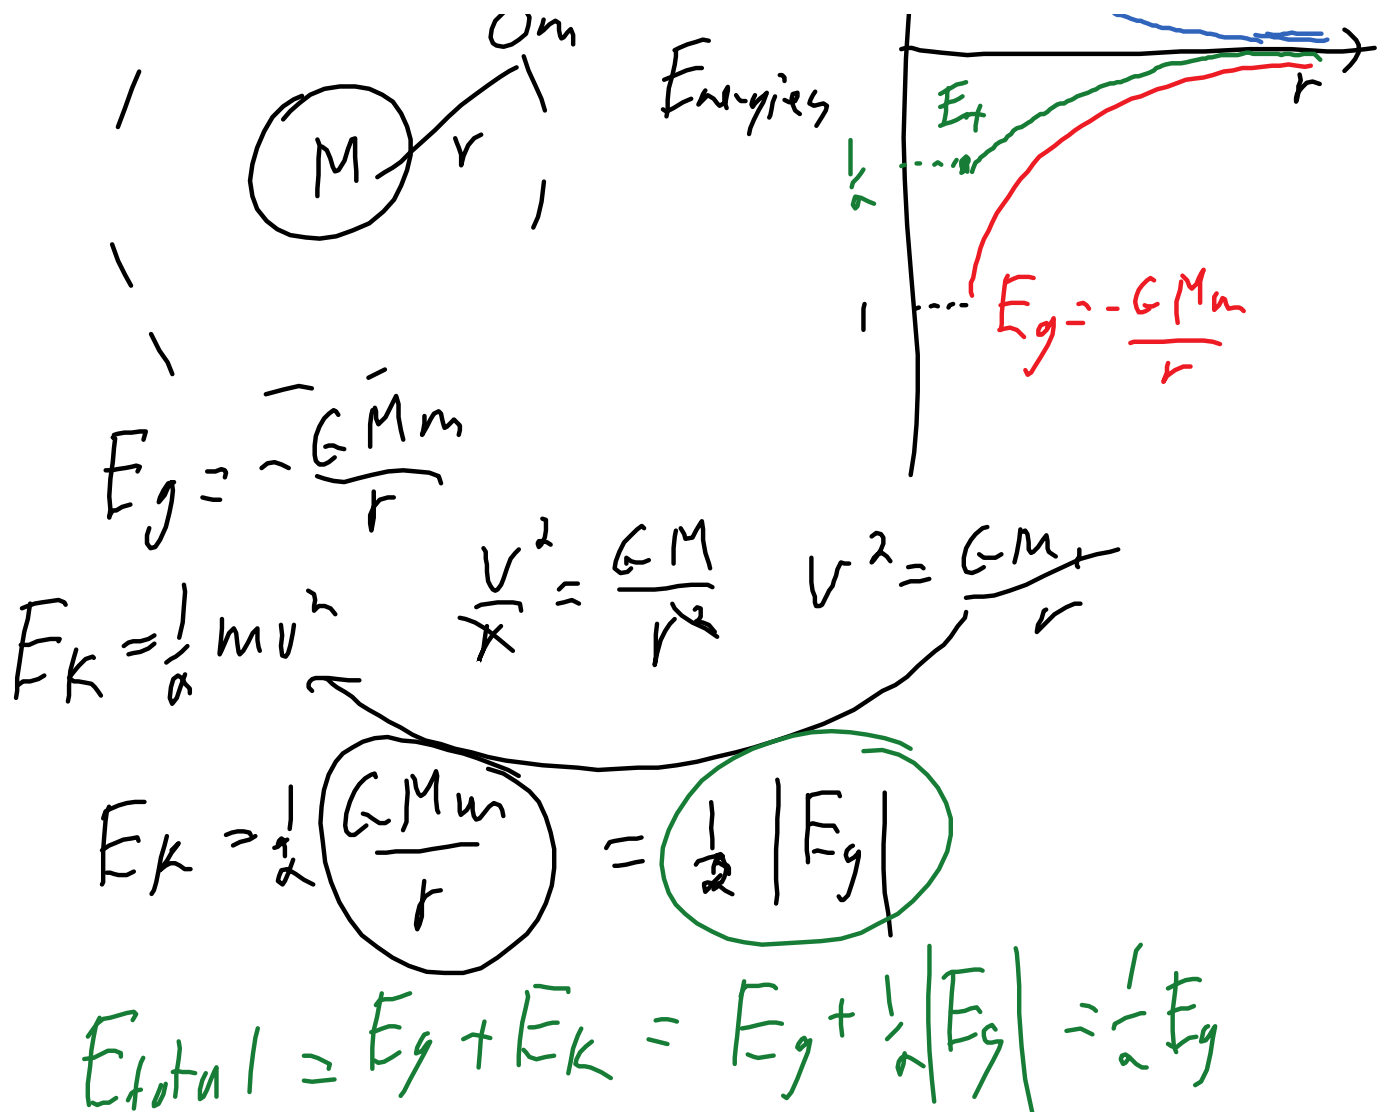 m
M
r
Energies
E_t
r
1/2
1
E_g = - GMm/r
E_g = - GMm/r
v²/r = GM/r²
v² = GM/r
E_K = 1/2 mv²
E_K = 1/2 GMm/r = 1/2 |E_g|
E_total = E_g + E_K = E_g + 1/2 |E_g| = 1/2 E_g